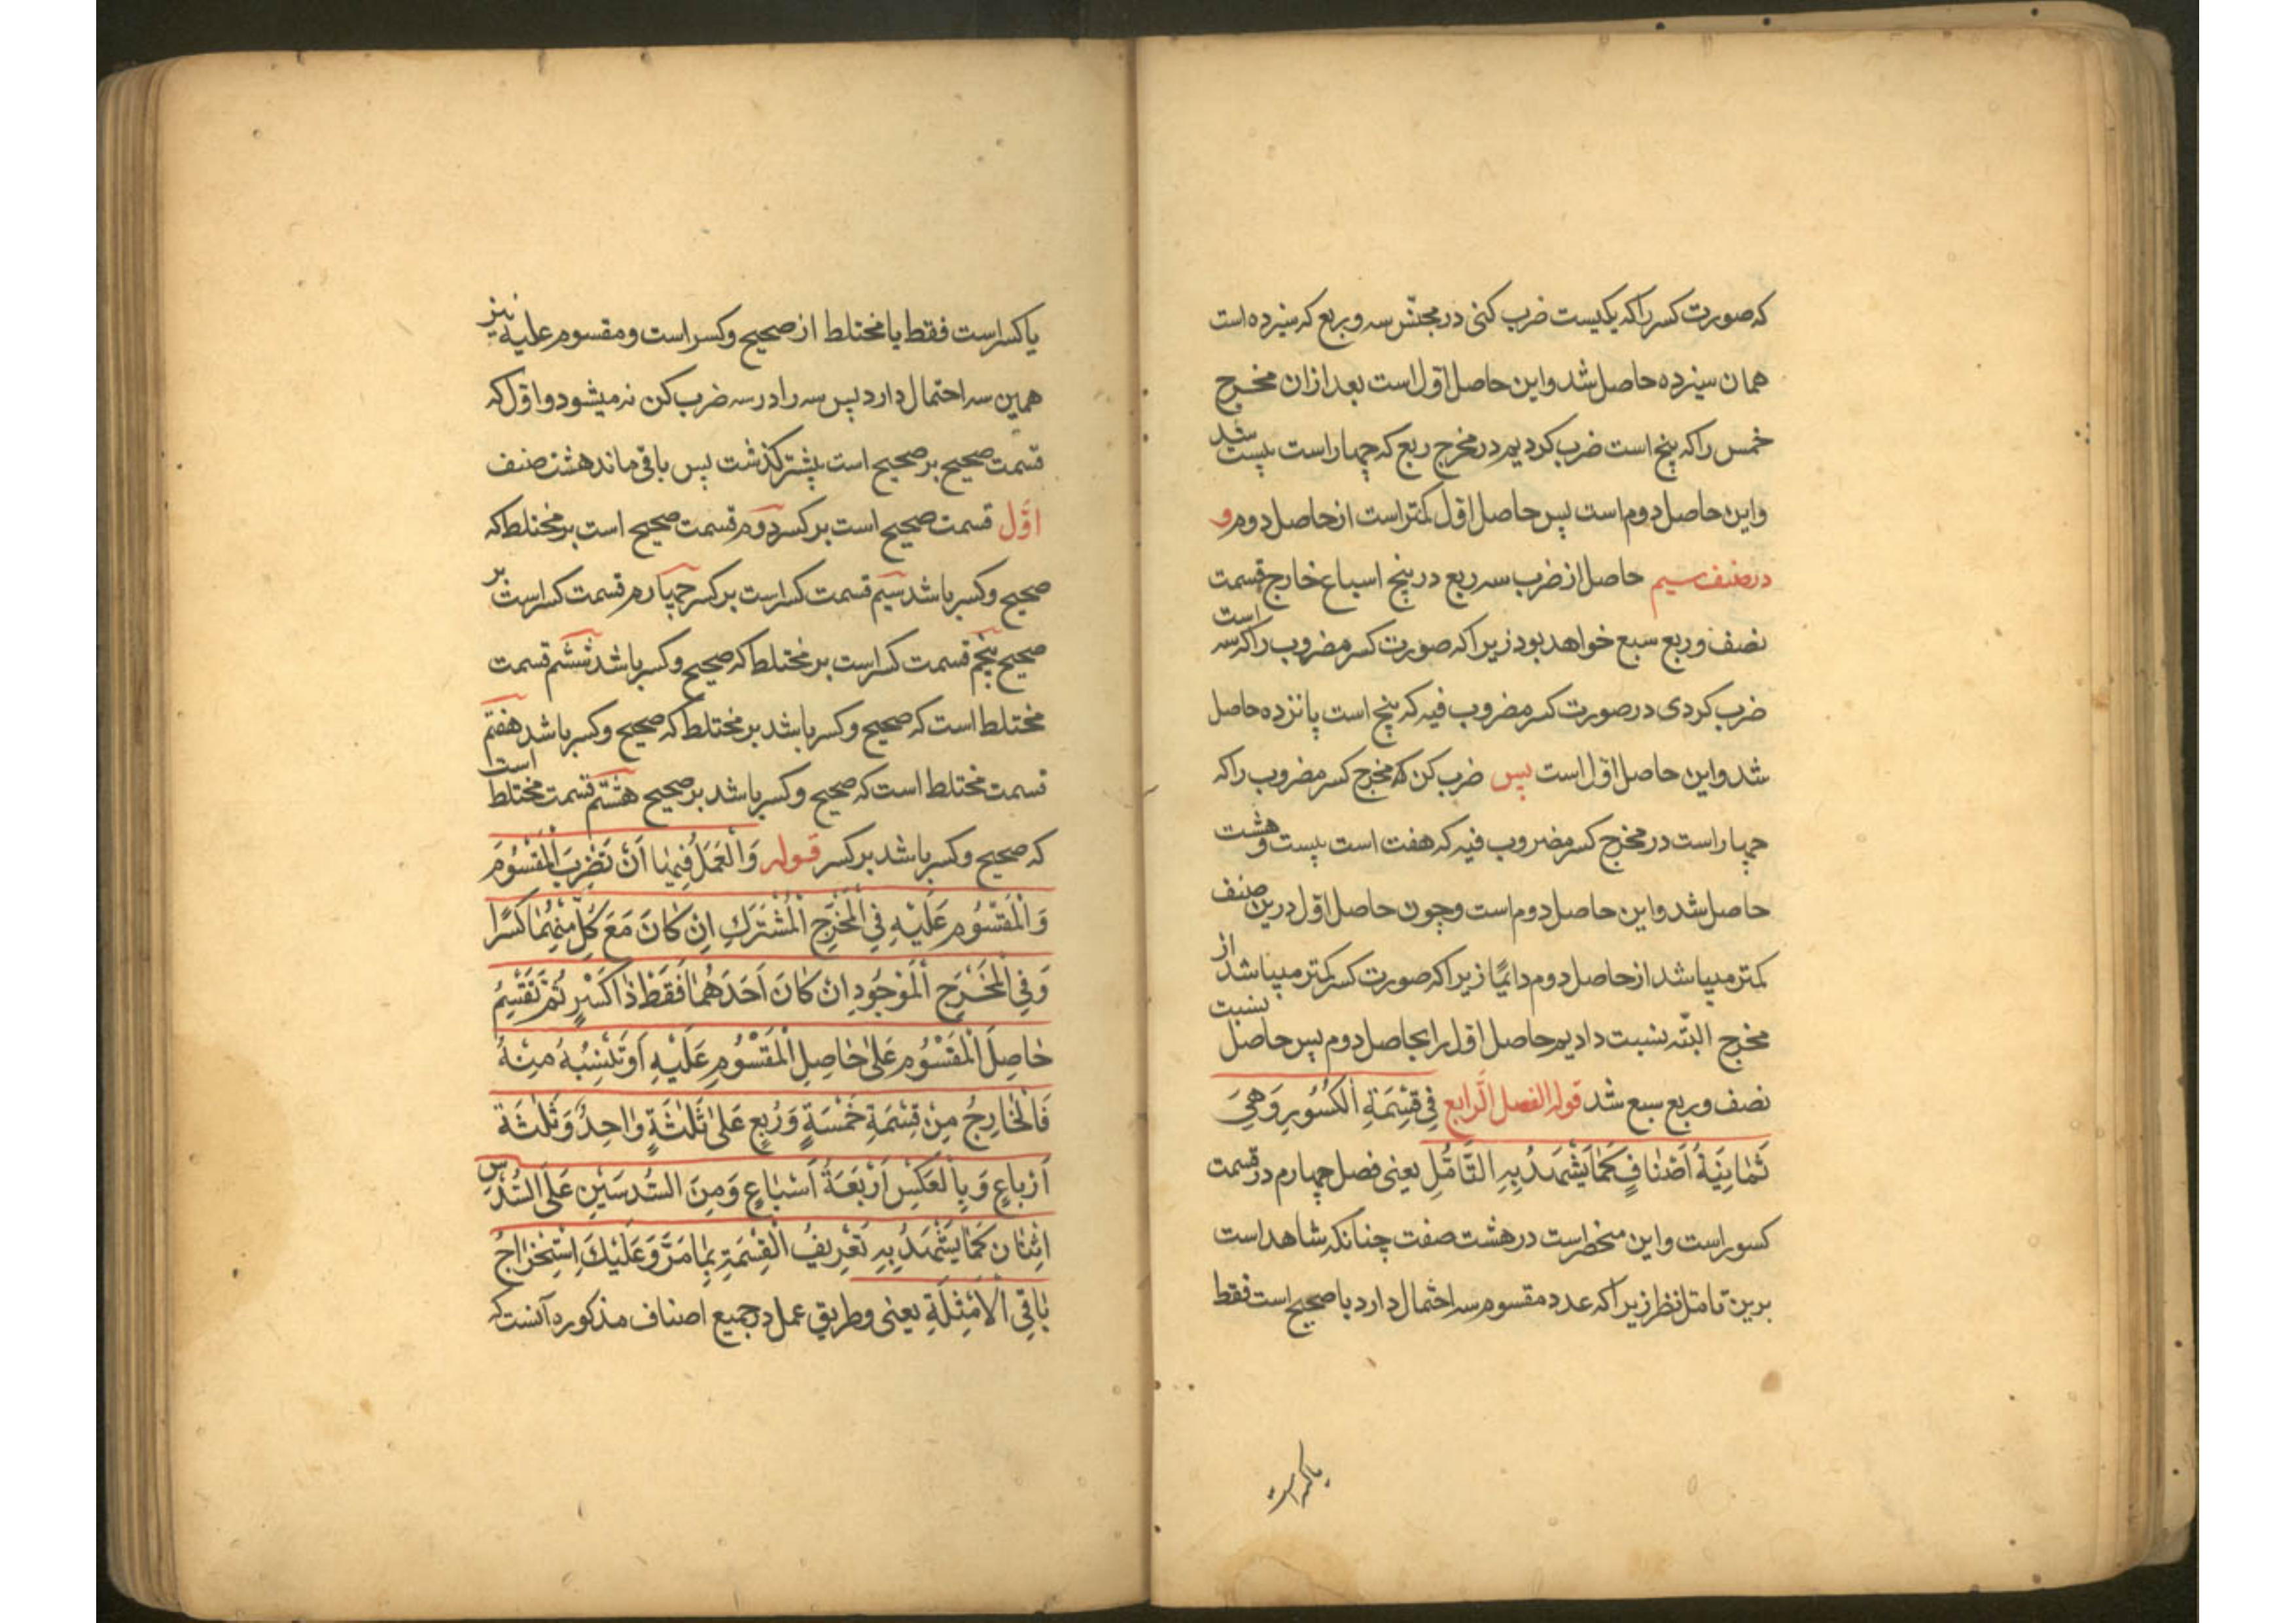 که صورت کسر را که یکیست ضرب کنی در مجنّس سه و ربع که سیزده است
همان سیزده حاصل شد و این حاصل اوّل است بعد ازان مخرج
خمس را که پنج است ضرب کردیم در مخرج ربع که چهار است بیست شد
و این حاصل دوم است پس حاصل اوّل کمتر است از حاصل دوم و
در صنف سیم حاصل از ضرب سه ربع در پنج اسباع خارج قسمت
نصف و ربع سبع خواهد بود زیرا که صورت کسر مضروب را که سه است
ضرب کردی در صورت کسر مضروب فیه که پنج است پانزده حاصل
شد و این حاصل اوّل است پس ضرب کن که مخرج کسر مضروب را که
چهار است در مخرج کسر مضروب فیه که هفت است بیست و هشت
حاصل شد و این حاصل دوم است و چون حاصل اوّل درین صنف
کمتر میباشد از حاصل دوم دائمًا زیرا که صورت کسر کمتر میباشد از
مخرج البتّه نسبت دادیم حاصل اوّل را بحاصل دوم پس حاصل نسبت
نصف و ربع سبع شد قوله الفصل الرّابع فِي قِسْمَةِ الْكُسُورِ وَهِيَ
ثَمَانِيَةُ أَصْنَافٍ كَمَا يَشْهَدُ بِهِ التَّأَمُّلِ یعنی فصل چهارم در قسمت
کسور است و این منحصر است در هشت صفت چنانکه شاهد است
برین تامّل نظر زیرا که عدد مقسوم سه احتمال دارد یا صحیح است فقط
یا کسر است
یا کسر است فقط یا مختلط از صحیح و کسر است و مقسوم علیه نیز
همین سه احتمال دارد پس سه را در سه ضرب کن نه میشود و اوّل که
قسمت صحیح بر صحیح است پیشتر گذشت پس باقی ماند هشت صنف
اوّل قسمت صحیح است بر کسر دوم قسمت صحیح است بر مختلط که
صحیح و کسر باشد سیم قسمت کسر است بر کسر چهارم قسمت کسر است بر
صحیح پنجم قسمت کسر است بر مختلط که صحیح و کسر باشد ششم قسمت
مختلط است که صحیح و کسر باشد بر مختلط که صحیح و کسر باشد هفتم
قسمت مختلط است که صحیح و کسر باشد بر صحیح هشتم قسمت مختلط است
که صحیح و کسر باشد بر کسر قوله وَالْعَمَلُ فِيهَا أَنْ تَضْرِبَ الْمَقْسُومَ
وَالْمَقْسُومِ عَلَيْهِ فِي الْمَخْرَجِ الْمُشْتَرَكِ اِنْ كَانَ مَعَ كُلٍّ مِنْهُمَا كَسْرًا
وَفِي الْمَخْرَجِ الْمَوْجُودِ اِنْ كَانَ اَحَدَهُمَا فَقَطْ ذَا كَسْرٍ ثُمَّ تَقْسِيمُ
حَاصِلَ الْمَقْسُومِ عَلَى حَاصِلِ الْمَقْسُومِ عَلَيْهِ اَوْ تَنْسِبُهُ مِنْهُ
فَالْخَارِجُ مِنْ قِسْمَةِ خَمْسَةٍ وَرُبْعٍ عَلَى ثَلٰثَةٍ وَاحِدٌ وَثَلٰثَةُ
اَرْبَاعٍ وَبِالْعَكْسِ اَرْبَعَةُ اَسْبَاعٍ وَمِنَ السُّدُسَيْنِ عَلَى السُّدُسِ
اثْنَانِ كَمَا يَشْهَدُ بِهِ تَعْرِيفُ الْقِسْمَةِ بِمَا مَرَّ وَعَلَيْكَ اِسْتِخْرَاجُ
بَاقِي الْاَمْثِلَةِ یعنی و طریق عمل در جمیع اصناف مذکوره آنست که